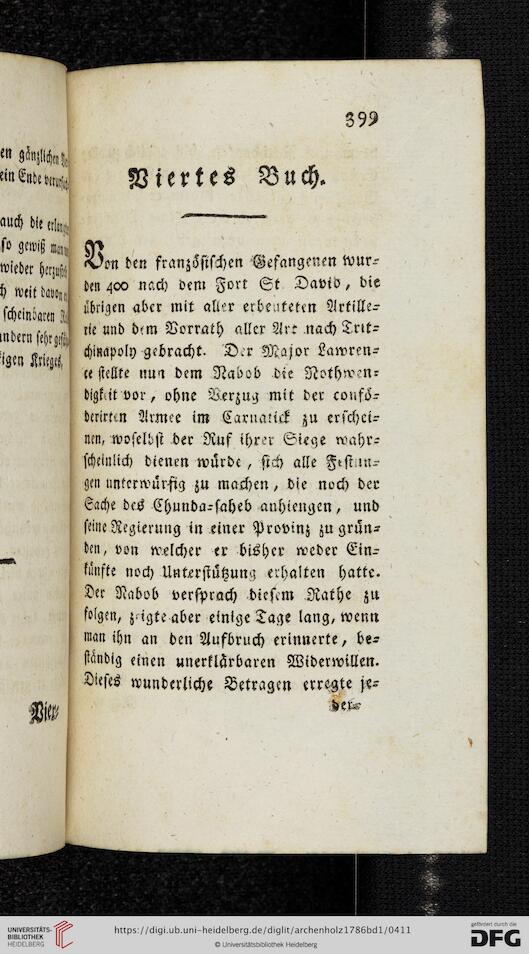 en gänzlichen
ein Ende
auch die
so gewiß
wieder
weit davon
scheinbaren
andern sehr
igen Krieges,
Vier-
399
Viertes Buch.
Von den französischen Gefangenen wur-
den 400 nach dem Fort St David, die
übrigen aber mit aller erbeuteten Artille-
rie und dem Vorrath aller Art nach Trit-
chinapoly gebracht. Der Major Lawren-
ce stellte nun dem Nabob die Nothwen-
digkeit vor, ohne Verzug mit der confö-
derirten Armee im Carnatick zu erschei-
nen, woselbst der Ruf ihrer Siege wahr-
scheinlich dienen würde, sich alle Festun-
gen unterwürfig zu machen, die noch der
Sache des Chunda-saheb anhiengen, und
seine Regierung in einer Provinz zu grün-
den, von welcher er bisher weder Ein-
künfte noch Unterstützung erhalten hatte.
Der Nabob versprach diesem Rathe zu
folgen, zeigte aber einige Tage lang, wenn
man ihn an den Aufbruch erinnerte, be-
ständig einen unerklärbaren Widerwillen.
Dieses wunderliche Betragen erregte je-
der-
UNIVERSITÄTS-
BIBLIOTHEK
HEIDELBERG
https://digi.ub.uni-heidelberg.de/diglit/archenholz1786bd1/0411
© Universitätsbibliothek Heidelberg
gefördert durch die
DFG